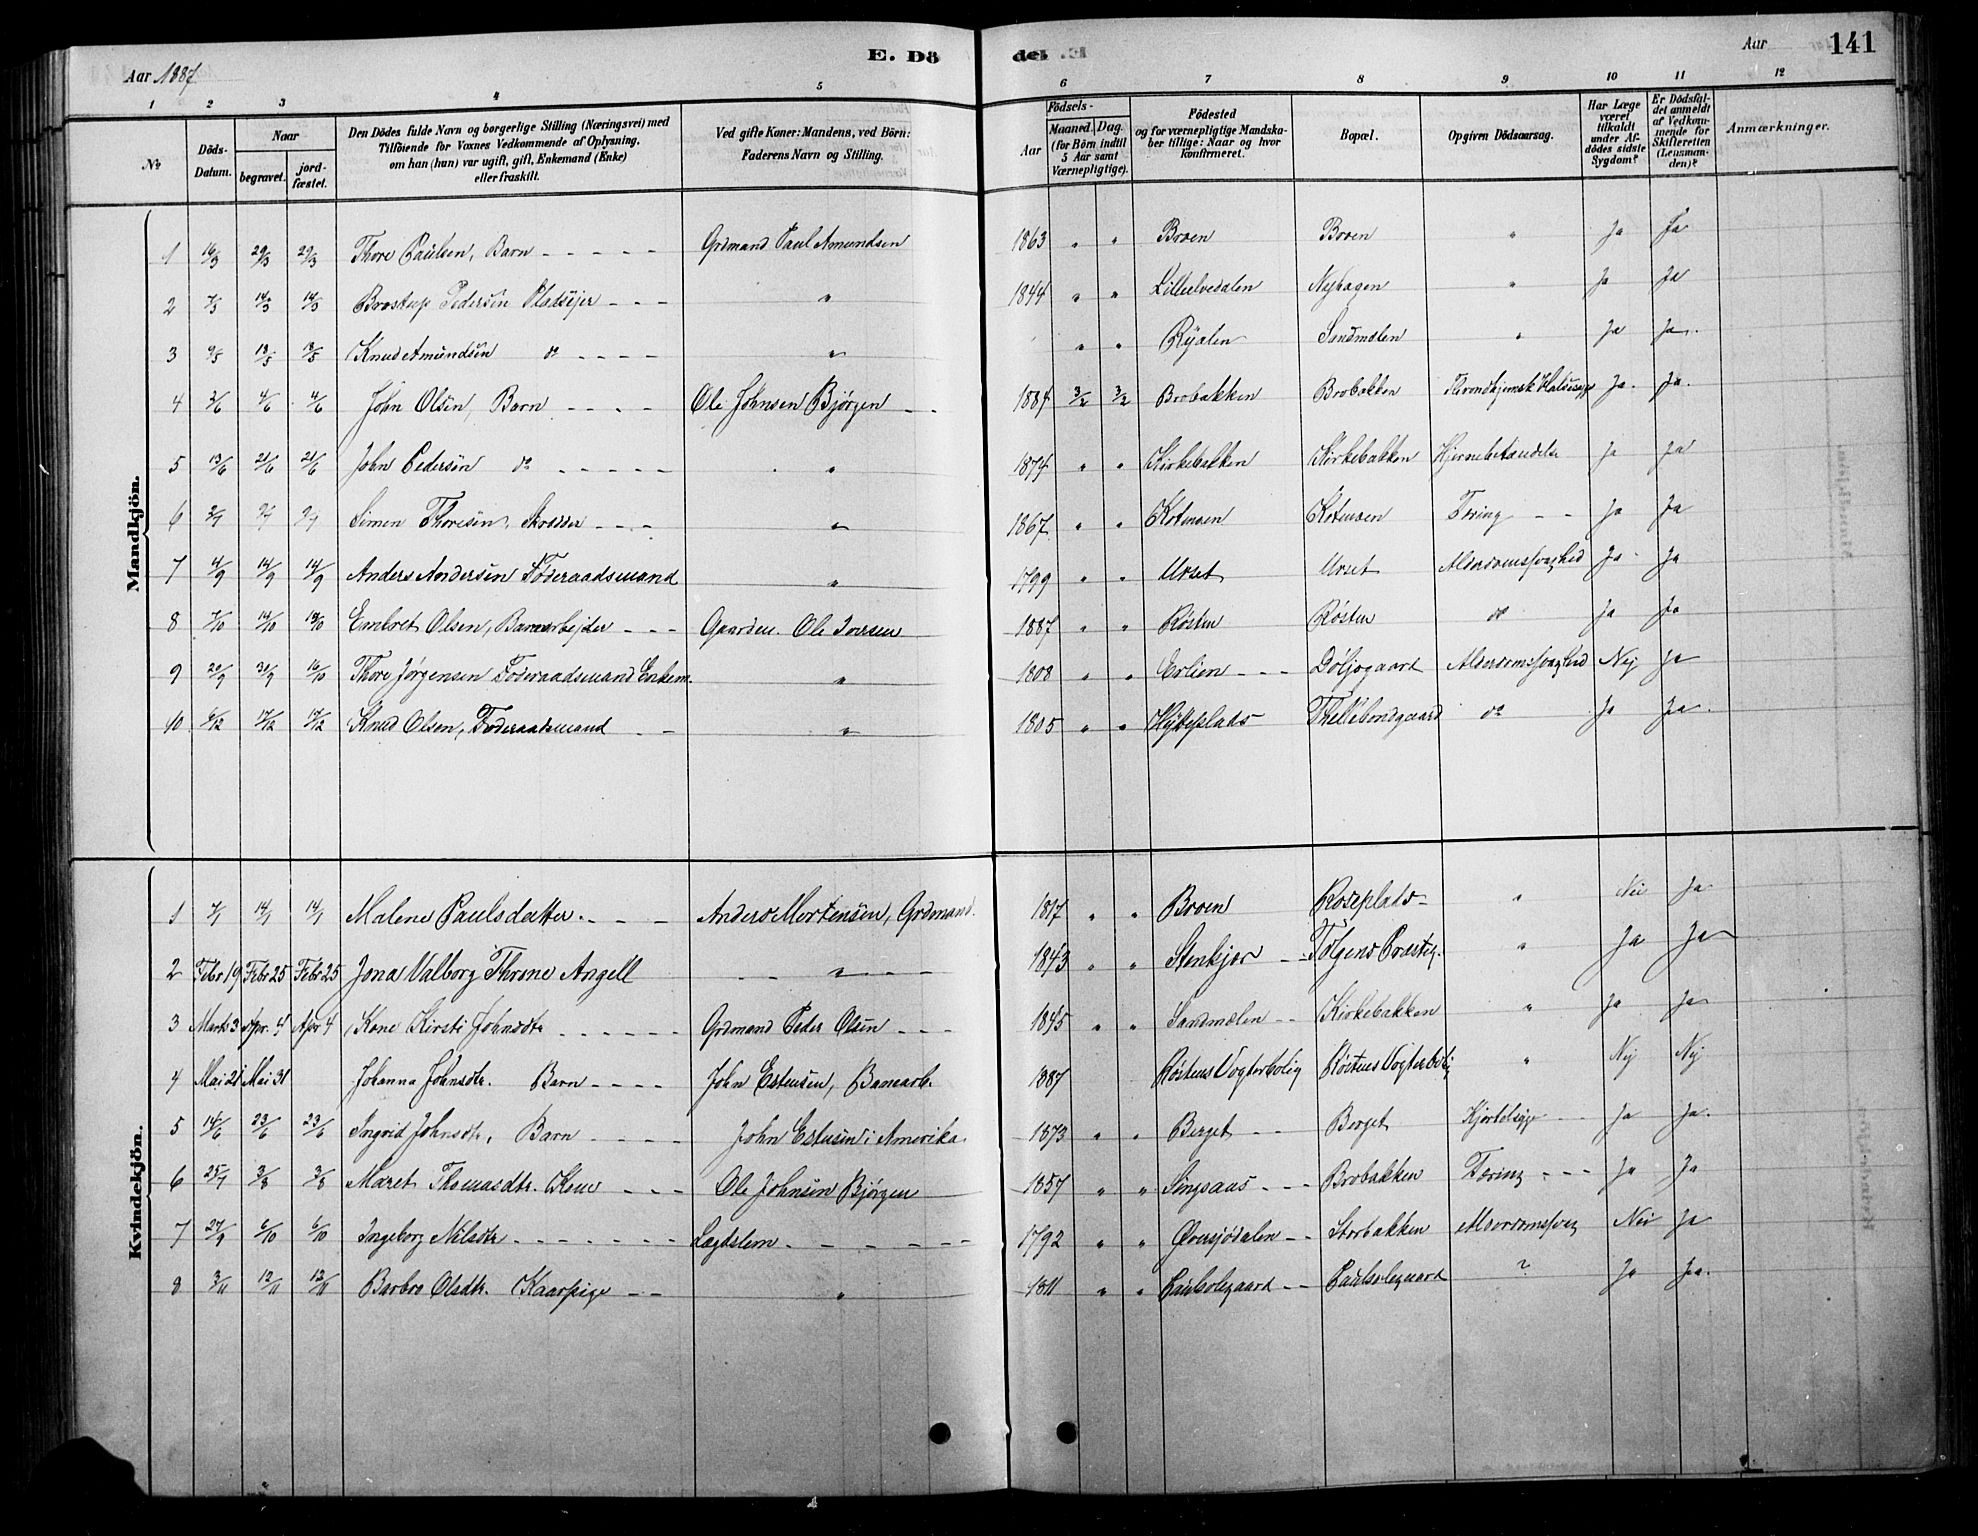 E. Dö
del
Aar 1887.
Aar
141
1 2 3 4 5 6 7 8 9 10 11 12
№
Döds-Datum.
Naar
begravet.
jord-fæstet.
Den Dödes fulde Navn og borgerlige Stilling (Næringsvei) med
Tilföiende for Voxnes Vedkommende af Oplysning,
om han (hun) var ugift, gift, Enkemand (Enke)
eller fraskilt.
Ved gifte Koner: Mandens, ved Börn:
Faderens Navn og Stilling.
Födsels-
Aar
Maaned. Dag.
(for Börn indtil
5 Aar samt
Værnepligtige).
Födested
og for værnepligtige Mandska-
ber tillige: Naar og hvor
konfirmeret.
Bopæl.
Opgiven Dödsaarsag.
Har Læge
været
tilkaldt
under Af-
dödes sidste
Sygdom?
Er Dödsfal-
det anmeldt
af Vedkom-
mende for
Skifteretten
(Lensman-
den)?
Anmærkninger.
Mandkjön.
1 16/3 29/3 29/3 Thore Paulsen, Barn Grdmand Paul Amundsen 1863 " " Broen Broen " Ja Ja
2 7/5 14/5 14/5 Brostrup Pedersen Pladsejer " 1844 " " Lilleelvedalen Nyhagen " Ja Ja
3 9/5 13/5 13/5 Knud Amundsen do " " " Ryalen Sandmælen " Ja Ja.
4 2/6 4/6 4/6 John Olsen, Barn Ole Johnsen Bjørgen 1887 3/2 3/2 Brobakken Brobakken Throndhjemsk Halssyge Ja. Ja.
5 13/6 21/6 21/6 John Pedersen do " 1874 " " Kirkebakken Kirkebakken Hjernebetændelse Ja Ja
6 2/7 9/7 9/7 Simen Thoresen, Skrædder " 1867 " " Kotensen Kotensen Tæring Ja Ja
7 4/9 14/9 14/9 Anders Andersen Føderaadsmand " 1799 " " Urset Urset Alderdomssvaghed Ja Ja
8 7/10 14/10 14/10 Embret Olsen, Banearbejder Gaardm. Ole Iversen 1887 " " Røsten Røsten do Ja Ja
9 20/9 30/9 16/10 Thore Jørgensen Føderaadsmand Enkem. " 1808 " " Erlien Døljogaard Alderdomssvaghed Nej Ja
10 6/12 17/12 17/12 Knud Olsen, Føderaadsmand " 1805 " " Hytteplads Thellebondgaard do Ja Ja.
Kvindekjön.
1 7/1 14/1 14/1 Malene Paulsdatter. Anders Mortensen, Grdmand. 1817 " " Broen Roseplads " Nei Ja
2 Febr 19 Febr 25 Febr 25 Jona Valborg Throne Angell " 1843 " " Stenkjær Tolgens Præsteg. " Ja Ja
3 Marts 3 Apr. 4 Apr 4 Kone Kirsti Johnsdtr Grdmand Peder Olsen 1845 " " Sandmælen Kirkebakken " Ja Ja
4 Mai 21 Mai 31 Johanna Johnsdtr. Barn John Estensen, Banearb. 1887 Røstens Vogterbolig Røstens Vogterbolig " Nej Nej
5 14/6 23/6 23/6 Ingrid Johnsdtr, Barn John Estensen i Amerika. 1873 " " Berget Berget Kjertelsyge Ja Ja.
6 25/7 3/8 3/8 Maret Thomasdtr. Kone Ole Johnsen Bjørgen 1857 " " Singsaas Brobakken Tæring Ja Ja
7 27/9 6/10 6/10 Ingeborg Nilsdtr Lægdslem. 1792 " " Øversjødalen Storbakken Alderdomssvag Nei Ja
8 3/11 12/11 12/11 Barbro Olsdtr. Kaarpige " 1811 " " Paulsolegaard Paulsolegaard ? Ja Ja.